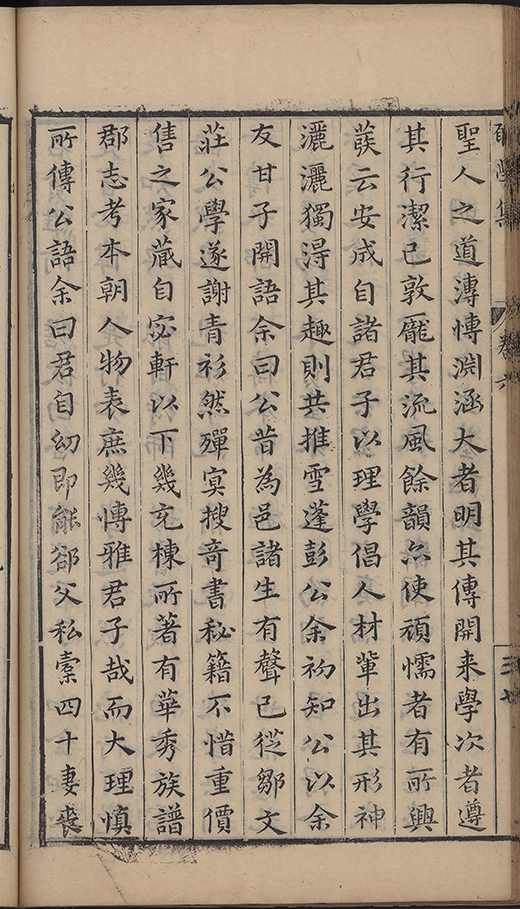 聖人之道漙愽淵涵大者明其傳開来學次者遵
其行潔已敦龐其流風餘韻尒使頑懦者有所興
蕿云安成自諸君子以理學倡人材軰出其形神
灑灑獨淂其趣則共推雪蓬彭公余初知公以余
友甘子開語余曰公昔為邑諸生有聲已從鄒文
莊公學遂謝青衫然殫㝠搜竒書秘籍不惜重價
售之家蔵自宓軒以下幾充棟所著有華秀族譜
郡志考本朝人物表庶幾愽雅君子哉而大理慎
所傳公語余曰君自幼即能郤父私槖四十妻喪
集
卷六
三七